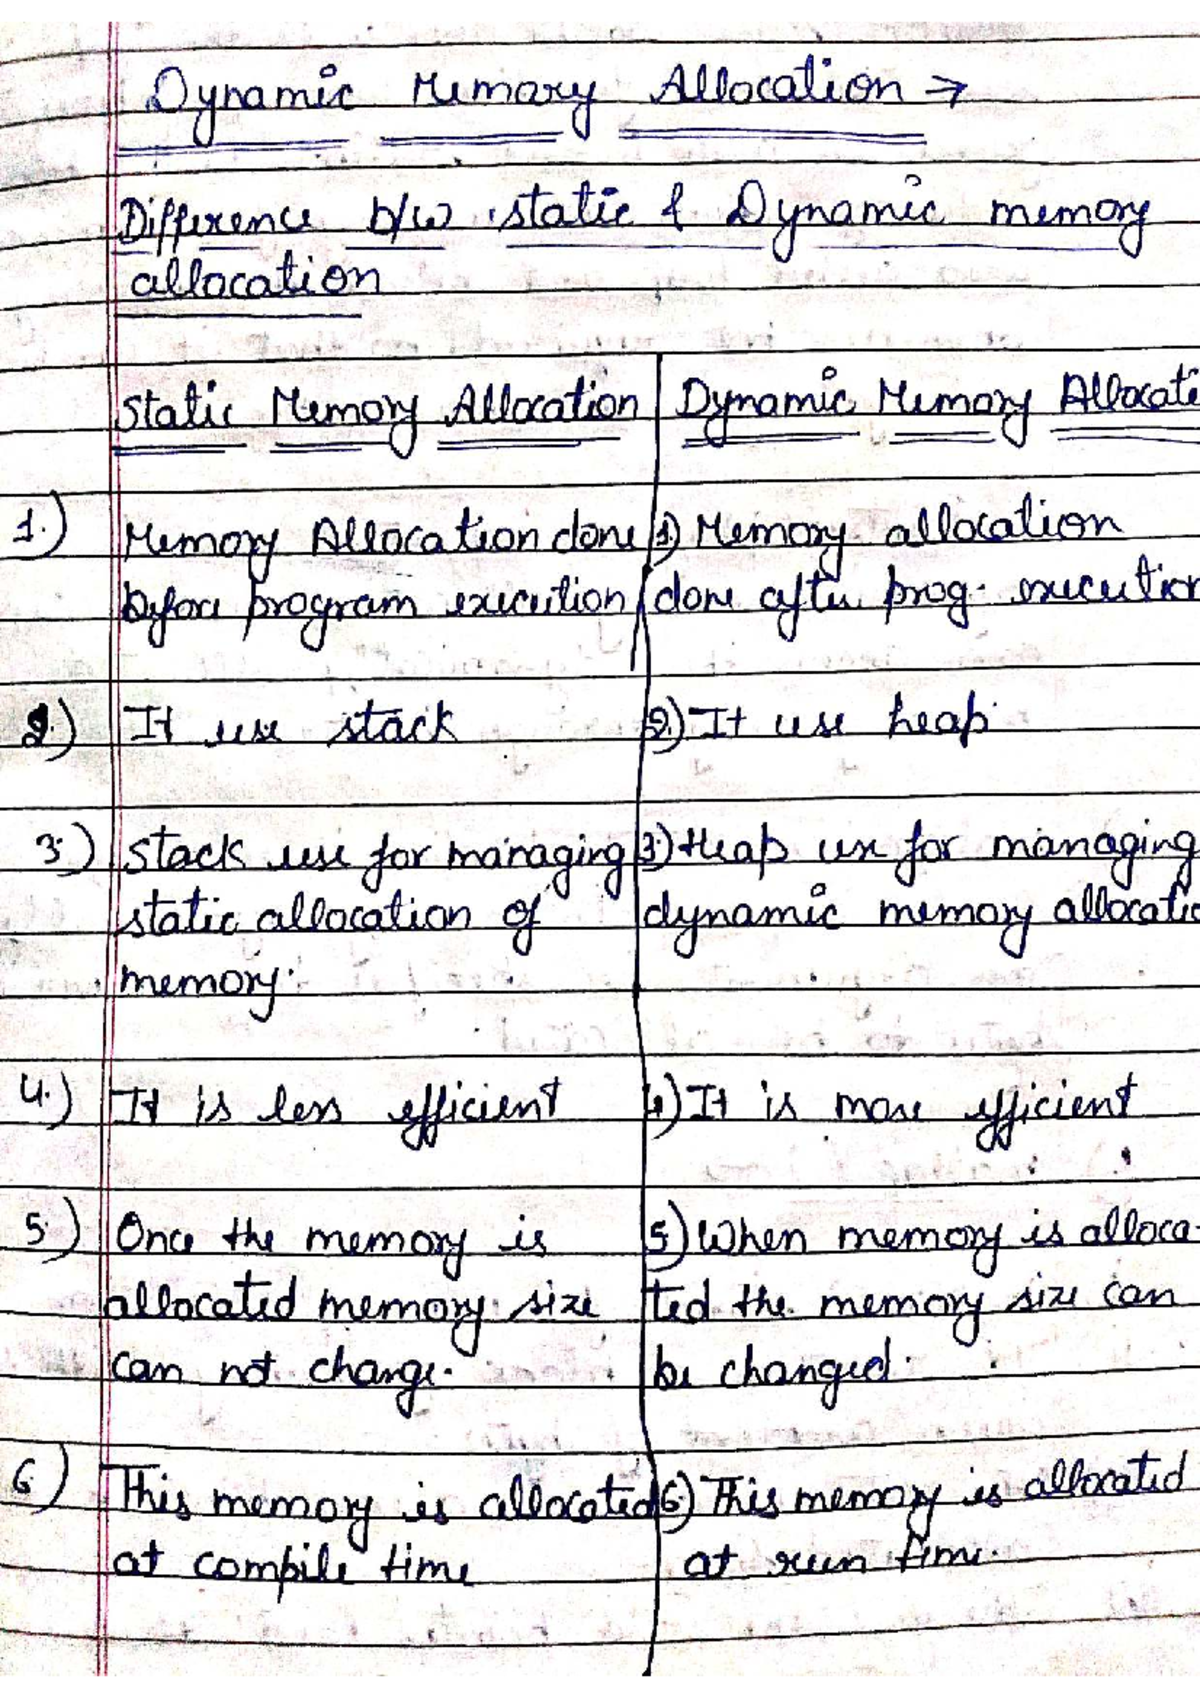 Dynamic Memory Allocation →
Difference b/w static & Dynamic memory
allocation
Static Memory Allocation
1.) Memory Allocation done
before program execution
2.) It use stack
3.) Stack use for managing
static allocation of
memory.
4.) It is less efficient
5.) Once the memory is
allocated memory size
can not change.
6.) This memory is allocated
at compile time
Dynamic Memory Allocati
1) Memory allocation
done after prog. execution
2.) It use heap.
3.) Heap use for managing
dynamic memory allocatio
4) It is more efficient
5) When memory is alloca-
ted the memory size can
be changed.
6) This memory is allocated
at run time.